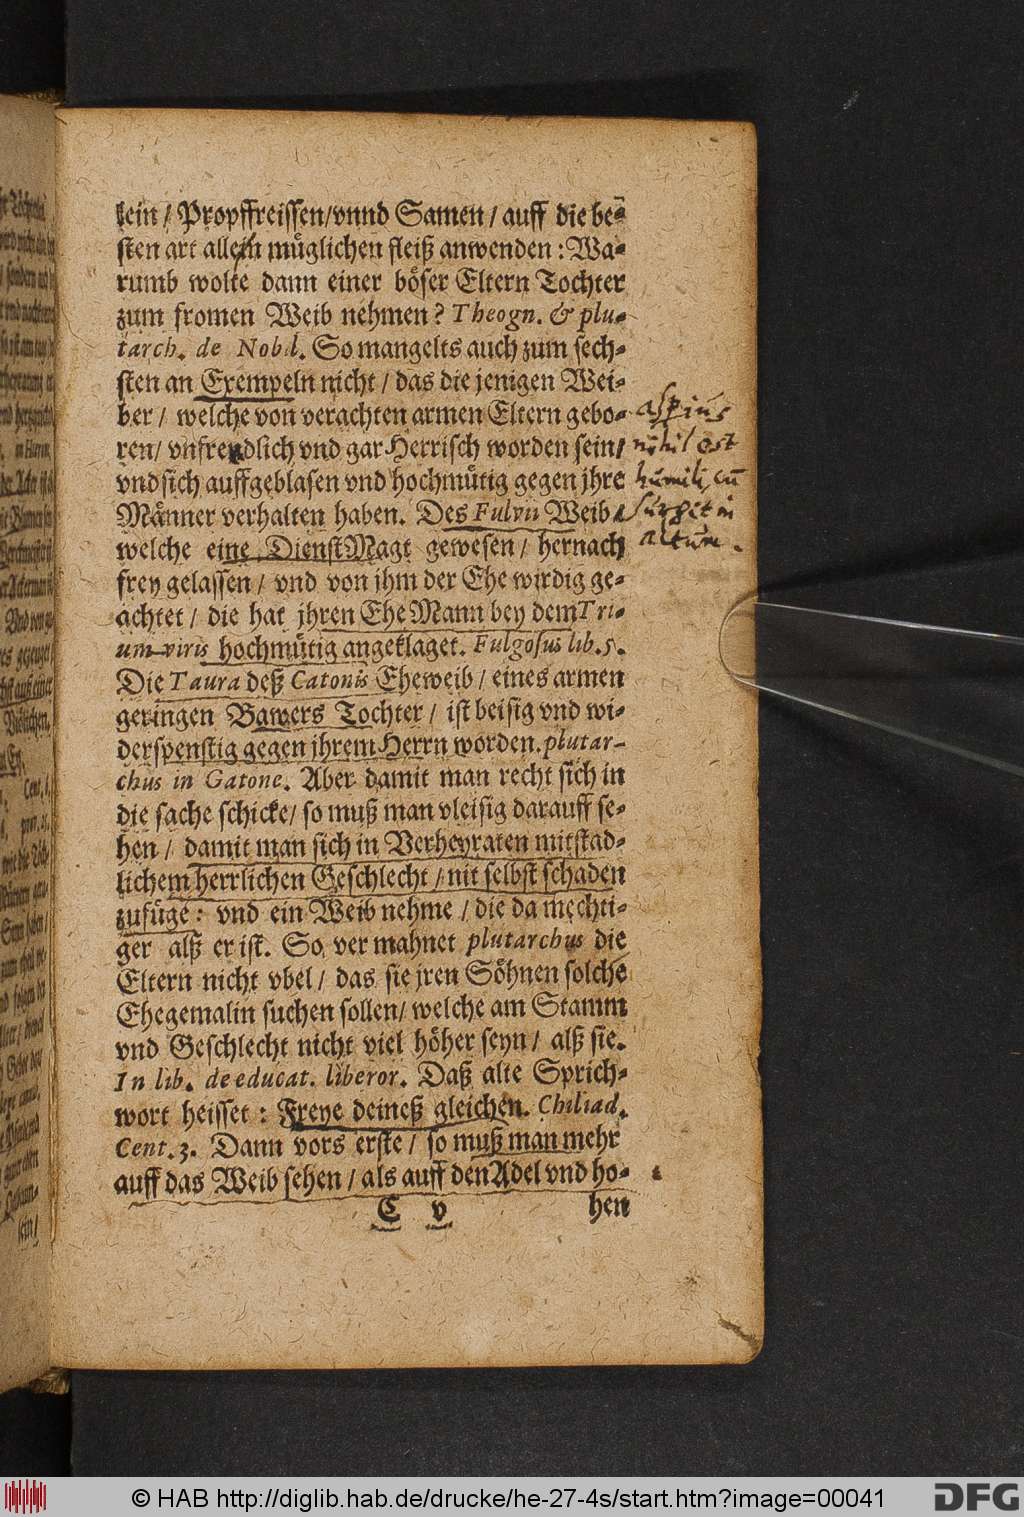 sein / Propffreissen/vnnd Samen / auff die be-
sten art allein müglichen fleiß anwenden : Wa-
rumb wolte dann einer böser Eltern Tochter
zum fromen Weib nehmen? Theogn. & plu-
tarch. de Nobil. So mangelts auch zum sech-
sten an Exempeln nicht / das die jenigen Wei-
ber / welche von verachten armen Eltern gebo-
ren/ vnfreundlich vnd gar Herrisch worden sein/
vnd sich auffgeblasen vnd hochmütig gegen jhre
Männer verhalten haben. Des Fulvii Weib /
welche eine DienstMagt gewesen / hernach
frey gelassen / vnd von jhm der Ehe wirdig ge-
achtet / die hat jhren EheMann bey dem Tri-
um-viris hochmütig angeklaget. Fulgosus lib. 5.
Die Taura deß Catonis Eheweib / eines armen
geringen Bawers Tochter / ist beisig vnd wi-
derspenstig gegen jhrem Herrn worden. plutar-
chus in Gatone. Aber damit man recht sich in
die sache schicke/ so muß man vleisig darauff se-
hen / damit man sich in Verheyraten mit stad-
lichem herrlichen Geschlecht / nit selbst schaden
zufüge : vnd ein Weib nehme / die da mechti-
ger alß er ist. So vermahnet plutarchus die
Eltern nicht vbel / das sie jren Söhnen solche
Ehegemalin suchen sollen/ welche am Stamm
vnd Geschlecht nicht viel höher seyn / alß sie.
In lib. de educat. liberor. Daß alte Sprich-
wort heisset : Freye deineß gleichen. Chiliad.
Cent. 3. Dann vors erste / so muß man mehr
auff das Weib sehen / als auff den Adel vnd ho-
C v hen
aspius
nihil est
humili cũ
surgit in
altum.
© HAB http://diglib.hab.de/drucke/he-27-4s/start.htm?image=00041
DFG